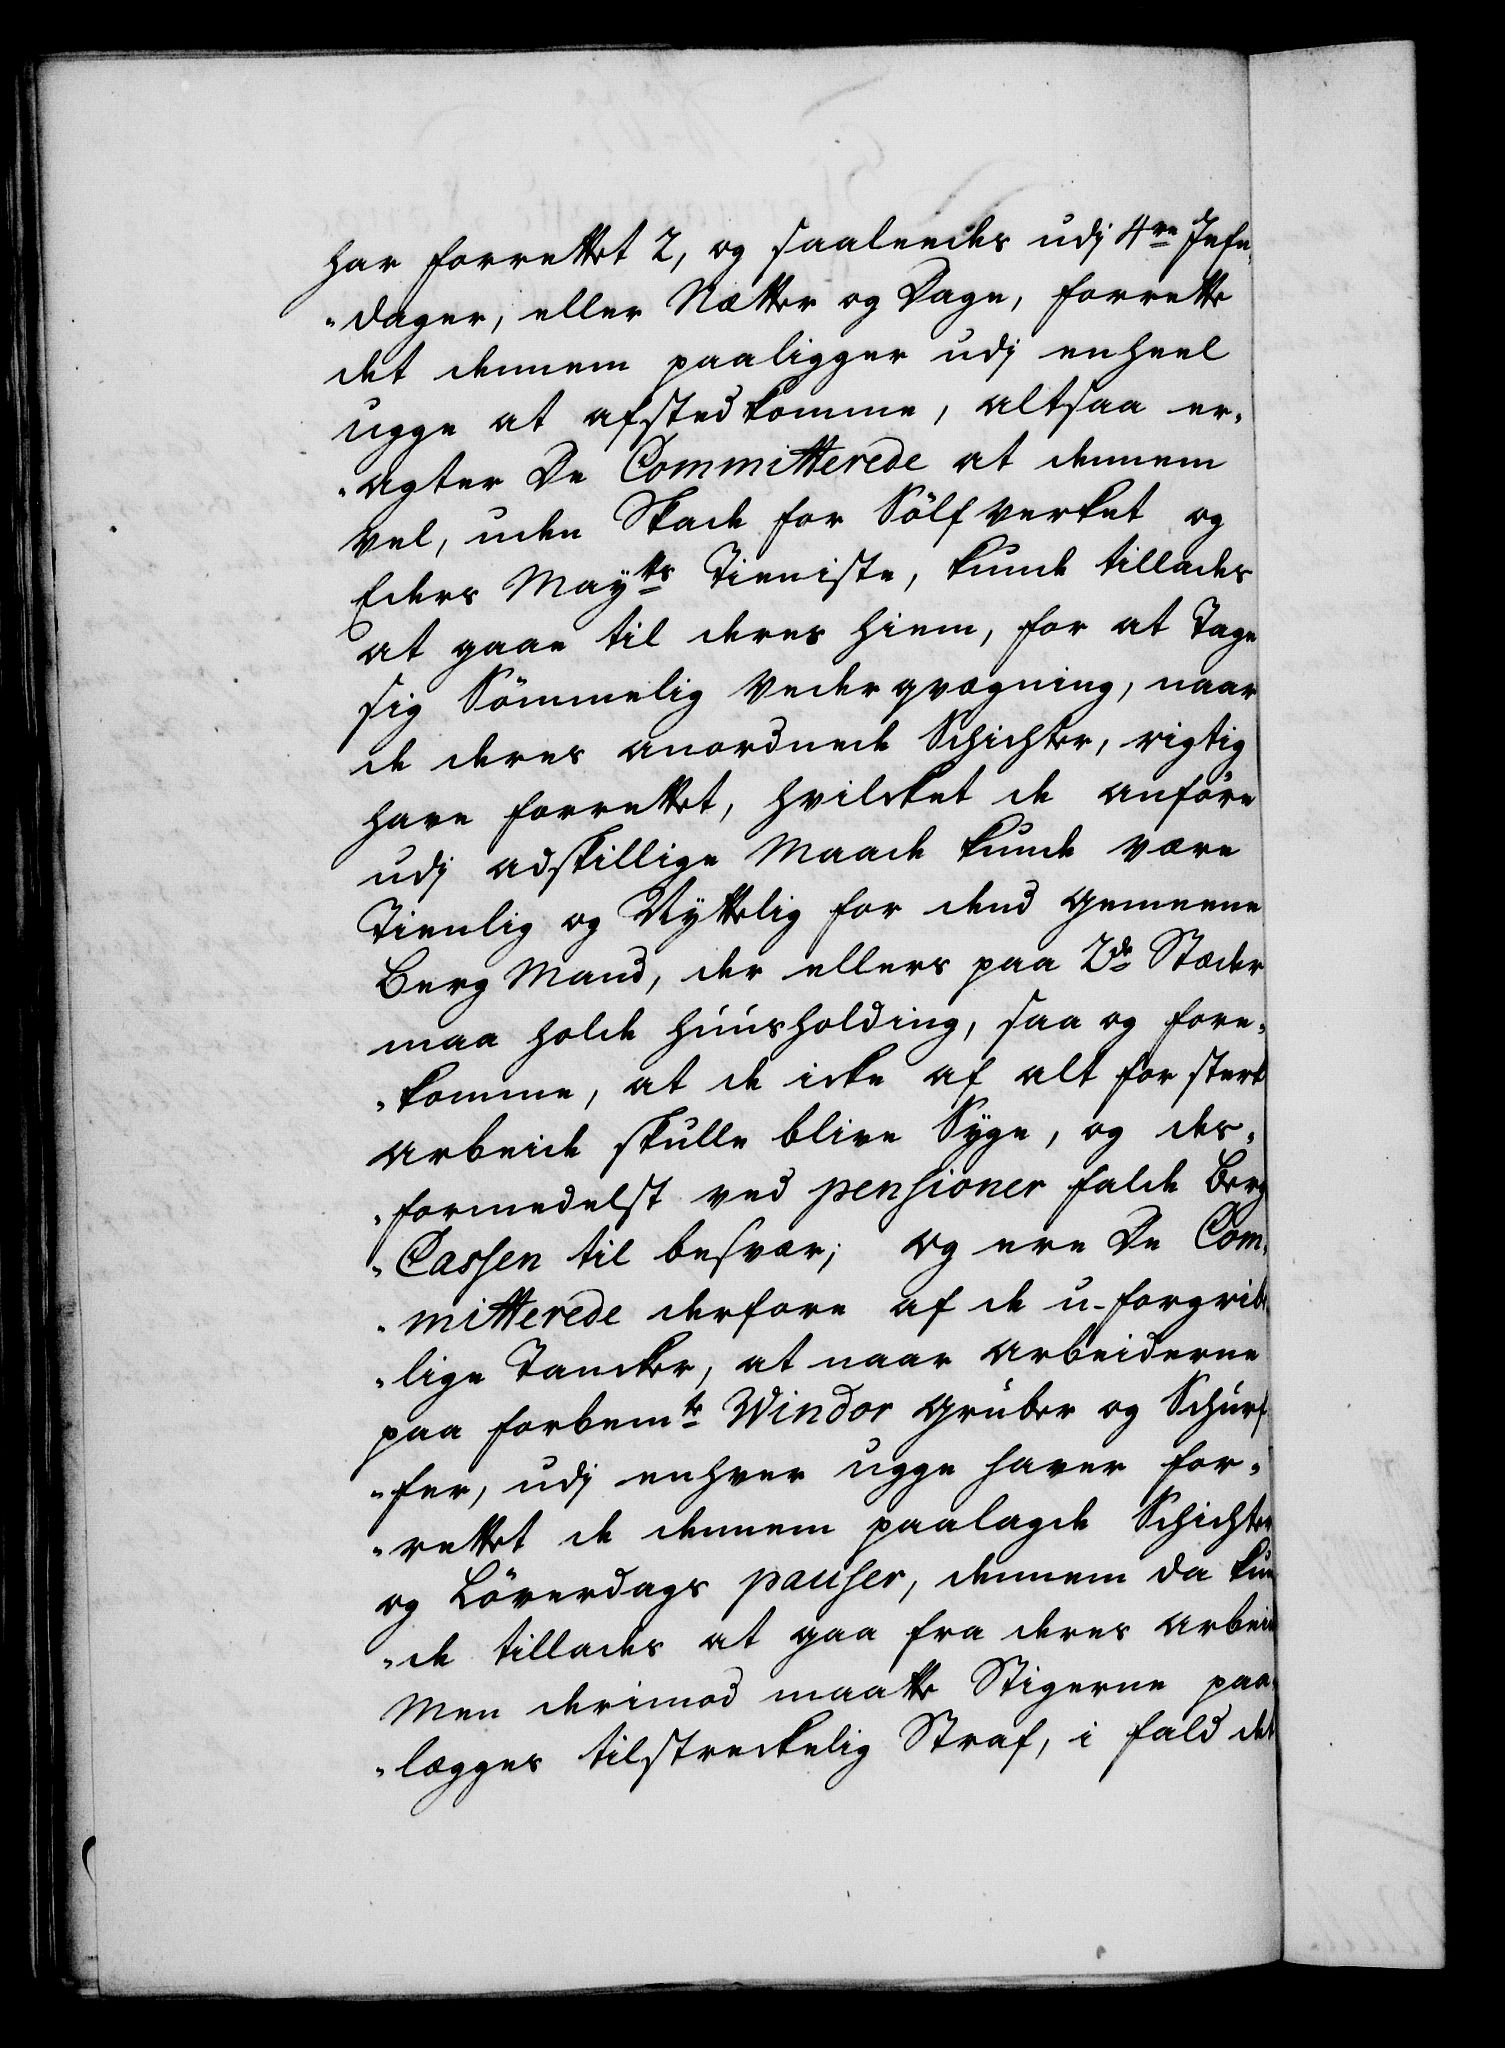 har forrettet 2, og saaleedes udj 4re Jefn„
„dager, eller Nætter og Dage, forrette
det dennem paaligger udj enheel
ugge at afstedkomme, altsaa er„
„agter De Committerede at dennem
vel, uden Skade for Sölfverket og
Eders Mayts Tieniste, kunde tillades
at gaae til deres hiem, for at Tage
sig Sömmelig Vederqvægning, naar
de deres anordnede Schichter, rigtig
have forrettet, hvilcket de anföre
udj adskillige Maade kunde være
Tienlig og Nyttelig for dend gemeene
Berg Mand, der ellers paa 2de Stæder
maa holde huusholding, saa og fore„
„komme, at de icke af alt for sterk
arbeide skulle blive Syge, og des„
„formedelst ved pensioner falde Berg
„Cassen til besvær; og ere De Com„
„mitterede derfore af de u-forgribe
„lige Tancker, at naar arbeiderne
paa forbemte Windor gruber og Schurf
„fer, udj enhver ugge haver for„
„rettet de dennem paalagde Schichter
og Löverdags pauser, dennem da kun
„de tillades at gaa fra deres arbeide
Men derimod maatte Stigerne paa„
„lægges tilstreckelig Straf, i fald det